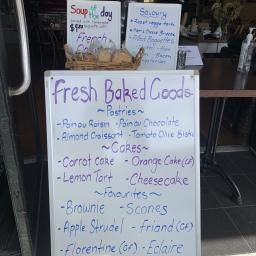 Soup of the day
$8.50
French
Savoury
Fresh Baked Goods
~Pastries~
-Pain au Raisin -Pain au Chocolate
-Almond Croissant -Tomato Olive
~Cakes~
-Carrot Cake -Orange Cake (GF)
-Lemon Tart -Cheesecake
~Favourites~
-Brownie -Scones
-Apple Strudel -Friand (GF)
-Florentine (GF) -Eclaire